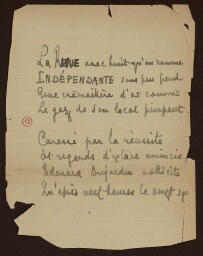 La REVUE avec bruit qu'on nomme
INDÉPENDANTE sans peu pend
Une crémaillère d'or comme
Le gaz de son local pimpant.
Caressé par la réussite
Et regards d'
Edouard Dujardin sollicite
Qu'après neuf heures le vingt six